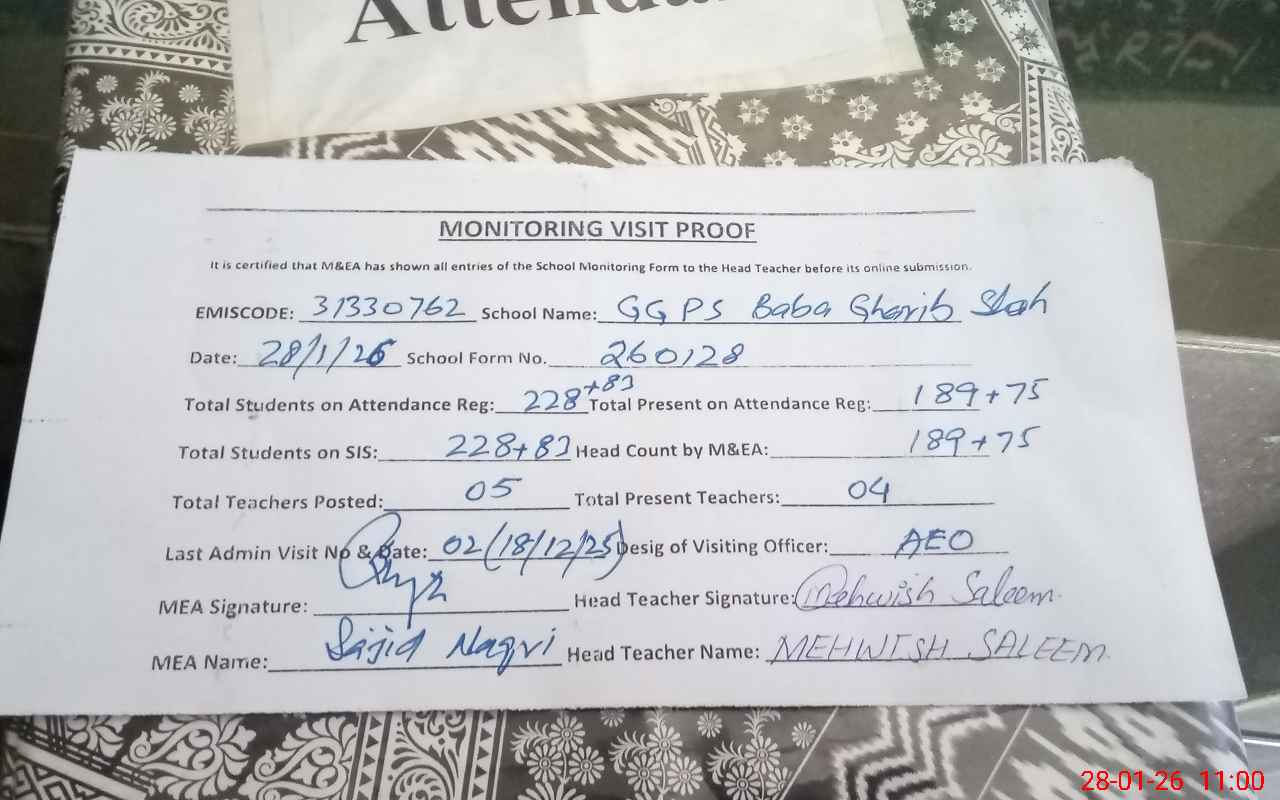 Attenda
MONITORING VISIT PROOF
It is certified that M&EA has shown all entries of the School Monitoring Form to the Head Teacher before its online submission.
EMISCODE: 31330762 School Name: GGPS Baba Gharib Shah
Date: 28/1/26 School Form No. 260128
Total Students on Attendance Reg: 228+83 Total Present on Attendance Reg: 189+75
Total Students on SIS: 228+83 Head Count by M&EA: 189+75
Total Teachers Posted: 05 Total Present Teachers: 04
Last Admin Visit No & Date: 02 (18/12/25) Desig of Visiting Officer: AEO
MEA Signature: Head Teacher Signature: Mehwish Saleem
MEA Name: Sajid Naqvi Head Teacher Name: MEHWISH SALEEM
28-01-26 11:00